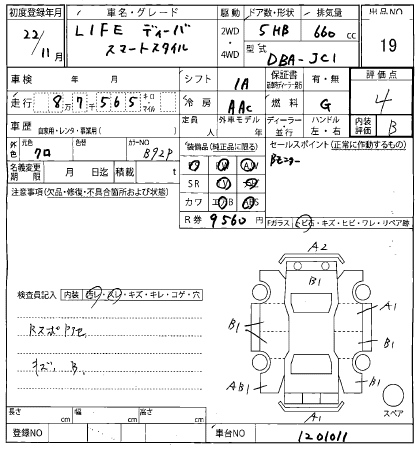 初度登録年月 車名・グレード 駆動 ドア数・形状 排気量 出品NO
22/11月 LIFE ディーバ スマートスタイル 2WD・4WD 5HB 660cc 19
型式 DBA-JC1
車検 年 月 シフト IA 保証書 有・無 評価点 4
走行 8万7千565 キロ・マイル 冷房 AAC 燃料 G
車歴 自家用・レンタ・事業用( ) 定員 人 外車モデル 年 ディーラー・並行 ハンドル 左・右 内装評価 B
外色 元色 クロ 色替 カラーNO B92P 装備品(純正品に限る) セールスポイント(正常に作動するもの)
名義変更期限 月 日迄 積載 t SR Bモニター
注意事項(欠品・修復・不具合箇所および状態) カワ
R券 9560円 Fガラス 飛石・キズ・ヒビ・ワレ・リペア跡
A2
B1
A1
B1 B1
検査員記入 内装 汚レ・スレ・キズ・キレ・コゲ・穴
キズ、B.
AB1 B1
A1
スペア
長さ cm 幅 cm 高さ cm
登録NO 車台NO 1201011